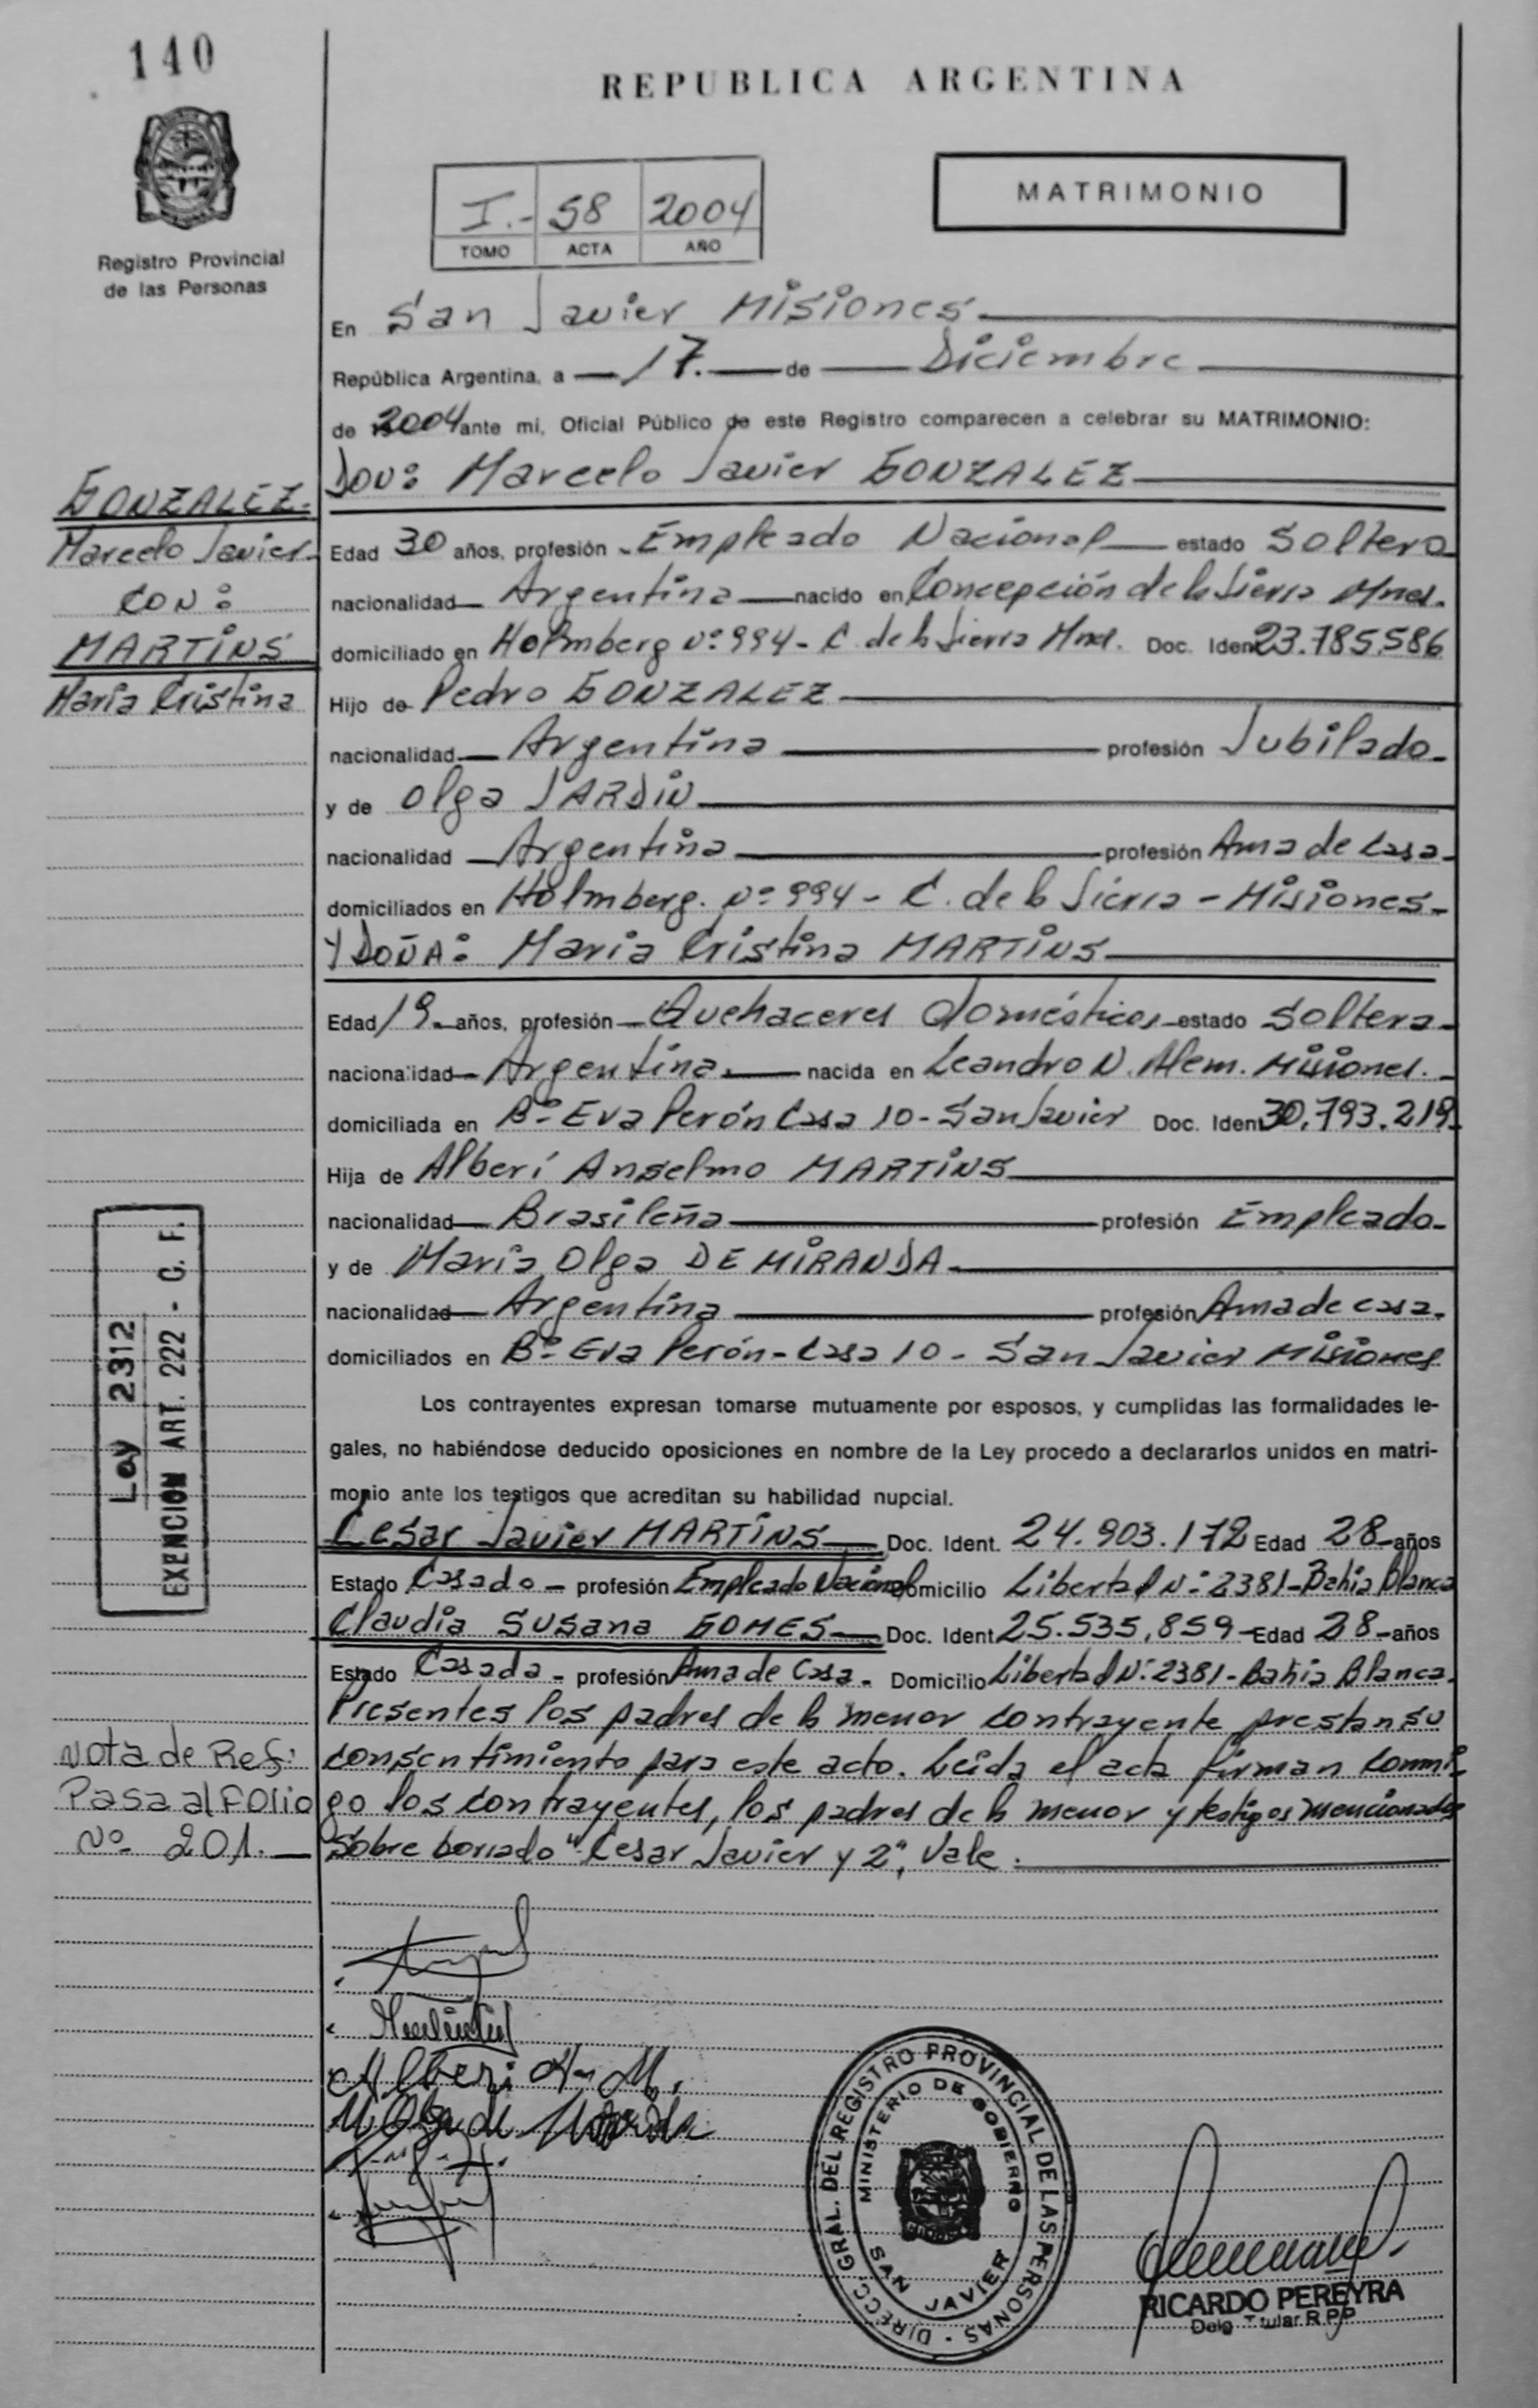 140
REPUBLICA ARGENTINA
MATRIMONIO
I.- 58 2004
TOMO ACTA AÑO
Registro Provincial
de las Personas
En San Javier Misiones
República Argentina, a 17. de Diciembre
de 2004 ante mi, Oficial Público de este Registro comparecen a celebrar su MATRIMONIO:
DON: Marcelo Javier GONZALEZ
GONZALEZ.
Marcelo Javier
CON:
MARTINS
María Cristina
Edad 30 años, profesión Empleado Nacional estado Soltero
nacionalidad Argentina nacido en Concepción de la Sierra Mnes.
domiciliado en Holmberg Nº 994 - C. de la Sierra Mnes. Doc. Ident 23.785.586
Hijo de Pedro GONZALEZ
nacionalidad Argentina profesión Jubilado
y de Olga JARDIN
nacionalidad Argentina profesión Ama de Casa
domiciliados en Holmberg. Nº 994 - C. de la Sierra - Misiones
Y DOÑA: María Cristina MARTINS
Edad 19 años, profesión Quehaceres domésticos estado Soltera
nacionalidad Argentina nacida en Leandro N. Alem. Misiones.
domiciliada en Bº Eva Perón Casa 10 - San Javier Doc. Ident 30.793.219
Hija de Alberí Anselmo MARTINS
nacionalidad Brasileña profesión Empleado
y de María Olga DE MIRANDA
nacionalidad Argentina profesión Ama de casa.
domiciliados en Bº Eva Perón - Casa 10 - San Javier Misiones
Los contrayentes expresan tomarse mutuamente por esposos, y cumplidas las formalidades le-
gales, no habiéndose deducido oposiciones en nombre de la Ley procedo a declararlos unidos en matri-
monio ante los testigos que acreditan su habilidad nupcial.
Cesar Javier MARTINS Doc. Ident. 24.903.172 Edad 28 años
Estado Casado - profesión Empleado Nacional Domicilio Libertad Nº 2381 - Bahía Blanca
Claudia Susana GOMES Doc. Ident 25.535.859 Edad 28 años
Estado Casada - profesión Ama de Casa - Domicilio Libertad Nº 2381 - Bahía Blanca.
Presentes los padres de la menor contrayente prestan su
consentimiento para este acto. Leída el acta firman conmi-
go los contrayentes, los padres de la menor y testigos mencionados
Sobre borrado "Cesar Javier y 2", Vale.
Ley 2312
EXENCION ART. 222 - C. F.
Nota de Ref:
Pasa al Folio
Nº 201.
Alberi A. M.
DIRECC. GRAL. DEL REGISTRO PROVINCIAL DE LAS PERSONAS
MINISTERIO DE GOBIERNO
SAN JAVIER
RICARDO PEREYRA
Deleg. Titular R.P.P.